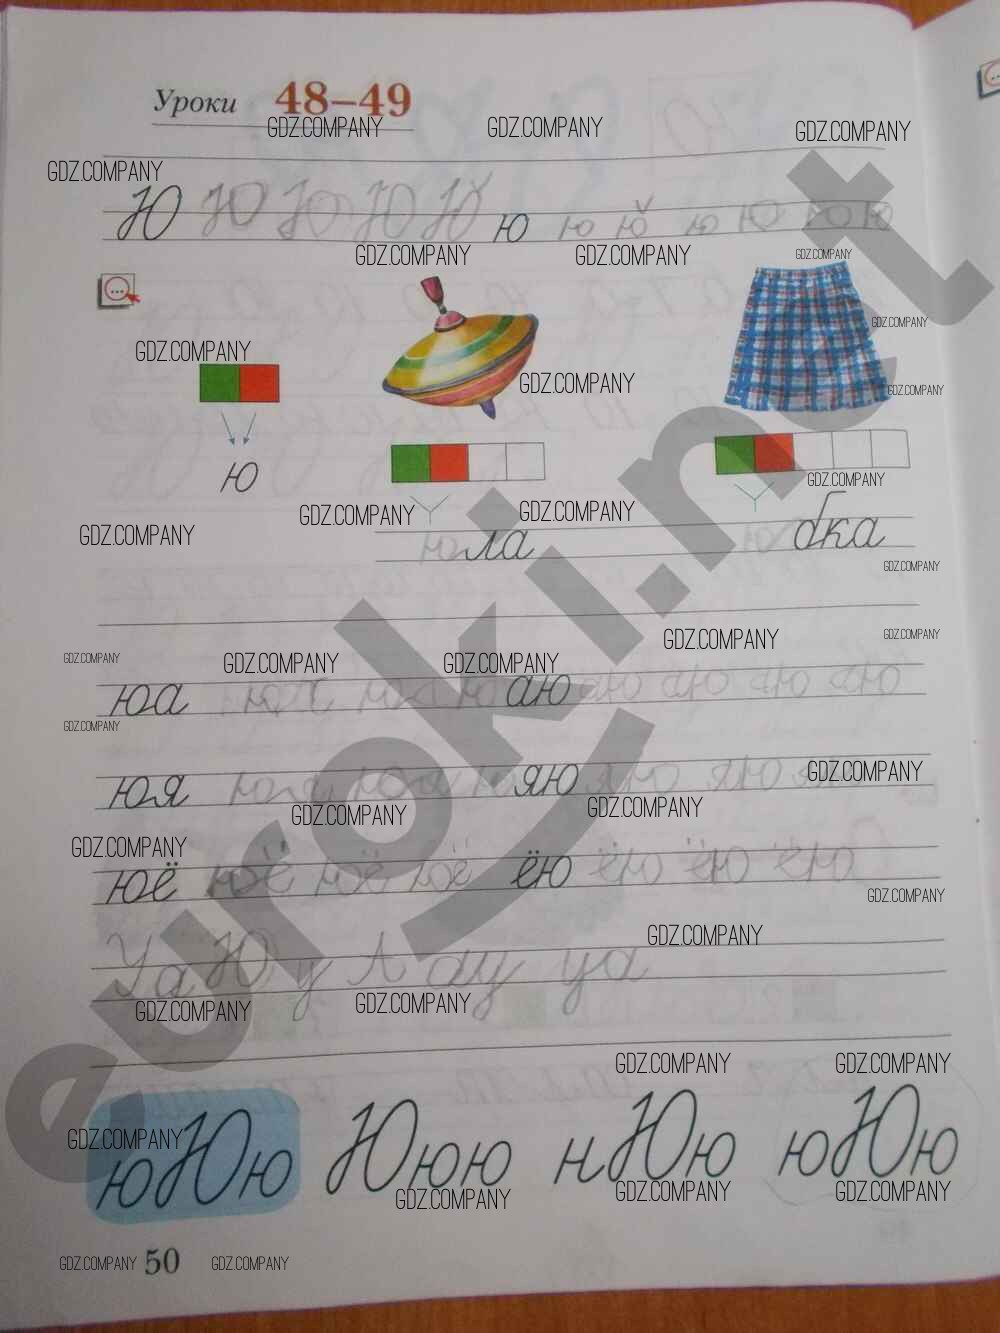 Уроки 48–49
GDZ.COMPANY GDZ.COMPANY GDZ.COMPANY
GDZ.COMPANY
Ю Ю Ю Ю Ю ю ю ю ю ю ю ю
GDZ.COMPANY GDZ.COMPANY GDZ.COMPANY
GDZ.COMPANY
GDZ.COMPANY
GDZ.COMPANY GDZ.COMPANY
ю
GDZ.COMPANY
GDZ.COMPANY GDZ.COMPANY
GDZ.COMPANY
юла юбка
GDZ.COMPANY
GDZ.COMPANY GDZ.COMPANY
GDZ.COMPANY GDZ.COMPANY GDZ.COMPANY
юа юа юа ю аю аю аю аю аю
GDZ.COMPANY
GDZ.COMPANY
юя юя юя яю яю яю
GDZ.COMPANY GDZ.COMPANY
GDZ.COMPANY
юё юё юё юё ёю ёю ёю ёю
GDZ.COMPANY
GDZ.COMPANY
Уа Ю у А ау уа
GDZ.COMPANY GDZ.COMPANY
GDZ.COMPANY GDZ.COMPANY
GDZ.COMPANY
юЮю Ююю нЮю юЮю
GDZ.COMPANY GDZ.COMPANY GDZ.COMPANY
GDZ.COMPANY 50 GDZ.COMPANY
euroki.net